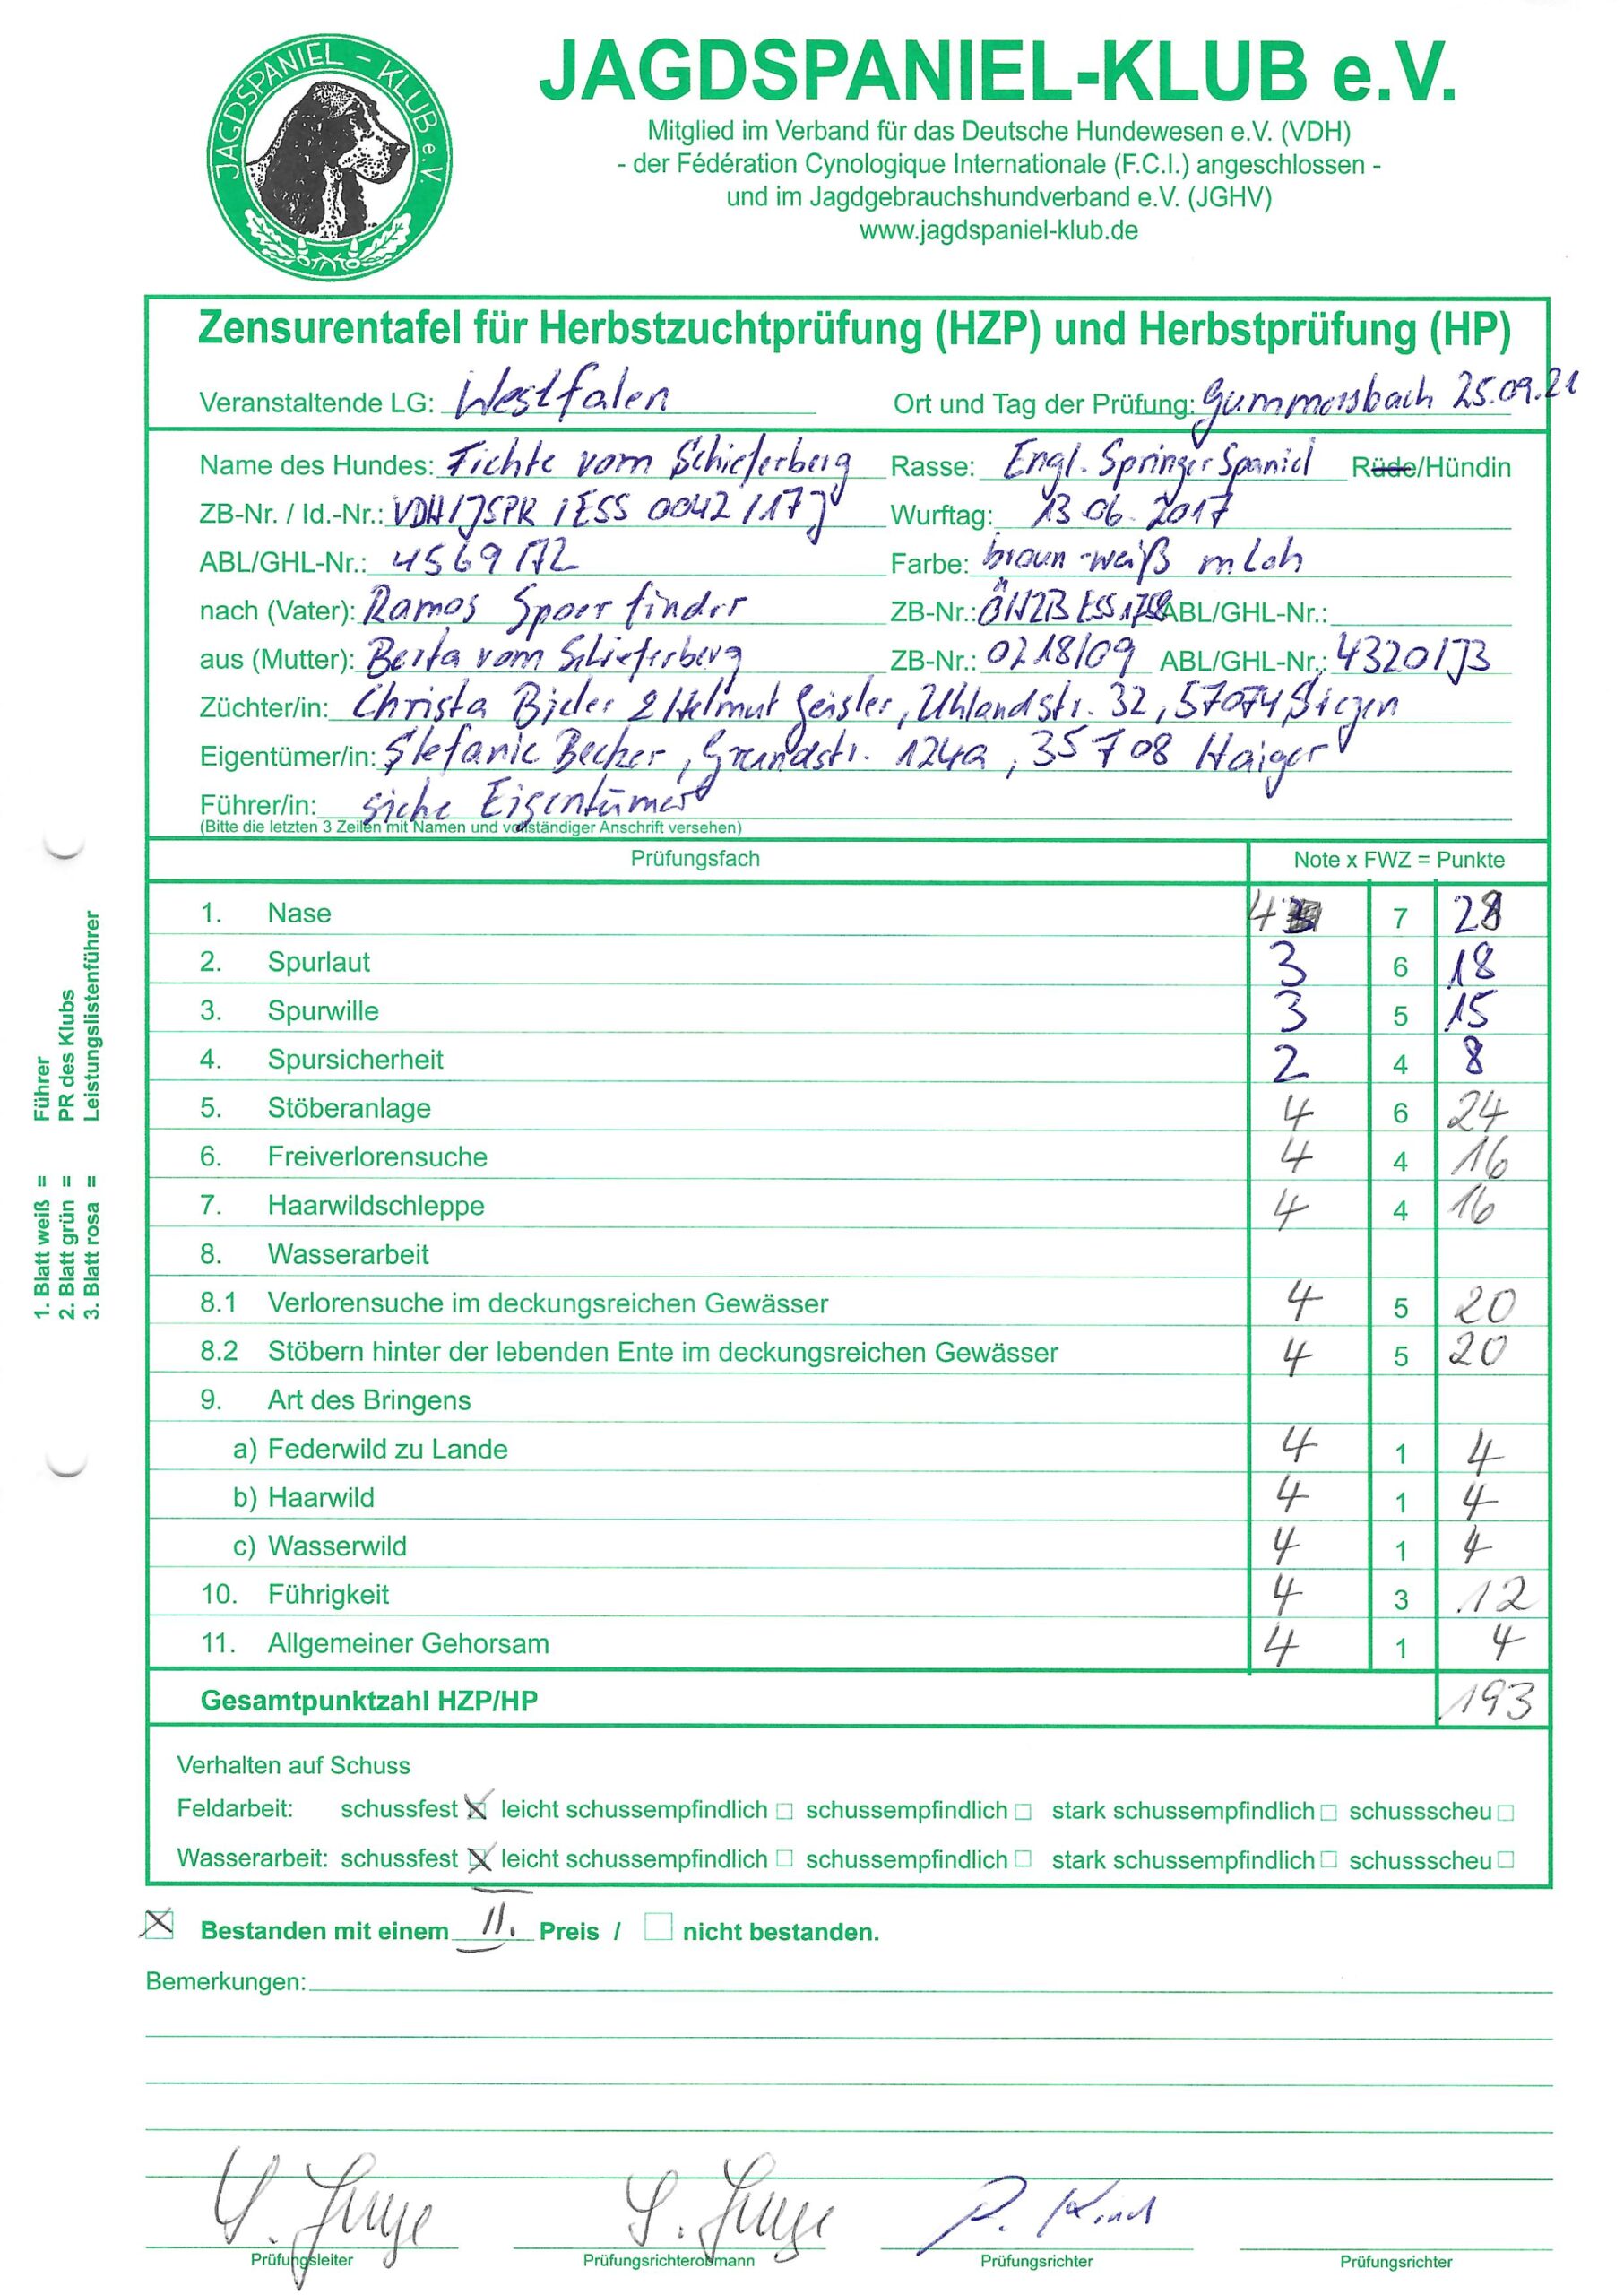 JAGDSPANIEL - KLUB e.V.
JAGDSPANIEL-KLUB e.V.
Mitglied im Verband für das Deutsche Hundewesen e.V. (VDH)
- der Fédération Cynologique Internationale (F.C.I.) angeschlossen -
und im Jagdgebrauchshundverband e.V. (JGHV)
www.jagdspaniel-klub.de
Zensurentafel für Herbstzuchtprüfung (HZP) und Herbstprüfung (HP)
Veranstaltende LG: Westfalen Ort und Tag der Prüfung: Gummersbach 25.09.21
Name des Hundes: Fichte vom Schieferberg Rasse: Engl. Springer Spaniel Rüde/Hündin
ZB-Nr. / Id.-Nr.: VDH/JSPK/ESS 0042/17J Wurftag: 13.06.2017
ABL/GHL-Nr.: 4569 Farbe: braun-weiß m Loh
nach (Vater): Ramos ZB-Nr.: ÖHZB ESS ABL/GHL-Nr.:
aus (Mutter): Berta vom Schieferberg ZB-Nr.: 0218/09 ABL/GHL-Nr.: 4320/J3
Züchter/in: Christa & Helmut Geisler, Uhlandstr. 32, 57074 Siegen
Eigentümer/in: Stefanie Becker, Grundstr. 124a, 35708 Haiger
Führer/in: siehe Eigentümer
(Bitte die letzten 3 Zeilen mit Namen und vollständiger Anschrift versehen)
Prüfungsfach Note x FWZ = Punkte
1. Nase 4 7 28
2. Spurlaut 3 6 18
3. Spurwille 3 5 15
4. Spursicherheit 2 4 8
5. Stöberanlage 4 6 24
6. Freiverlorensuche 4 4 16
7. Haarwildschleppe 4 4 16
8. Wasserarbeit
8.1 Verlorensuche im deckungsreichen Gewässer 4 5 20
8.2 Stöbern hinter der lebenden Ente im deckungsreichen Gewässer 4 5 20
9. Art des Bringens
a) Federwild zu Lande 4 1 4
b) Haarwild 4 1 4
c) Wasserwild 4 1 4
10. Führigkeit 4 3 12
11. Allgemeiner Gehorsam 4 1 4
Gesamtpunktzahl HZP/HP 193
Verhalten auf Schuss
Feldarbeit: schussfest leicht schussempfindlich schussempfindlich stark schussempfindlich schussscheu
Wasserarbeit: schussfest leicht schussempfindlich schussempfindlich stark schussempfindlich schussscheu
Bestanden mit einem II. Preis / nicht bestanden.
Bemerkungen:
Prüfungsleiter Prüfungsrichterobmann Prüfungsrichter Prüfungsrichter
1. Blatt weiß = Führer
2. Blatt grün = PR des Klubs
3. Blatt rosa = Leistungslistenführer